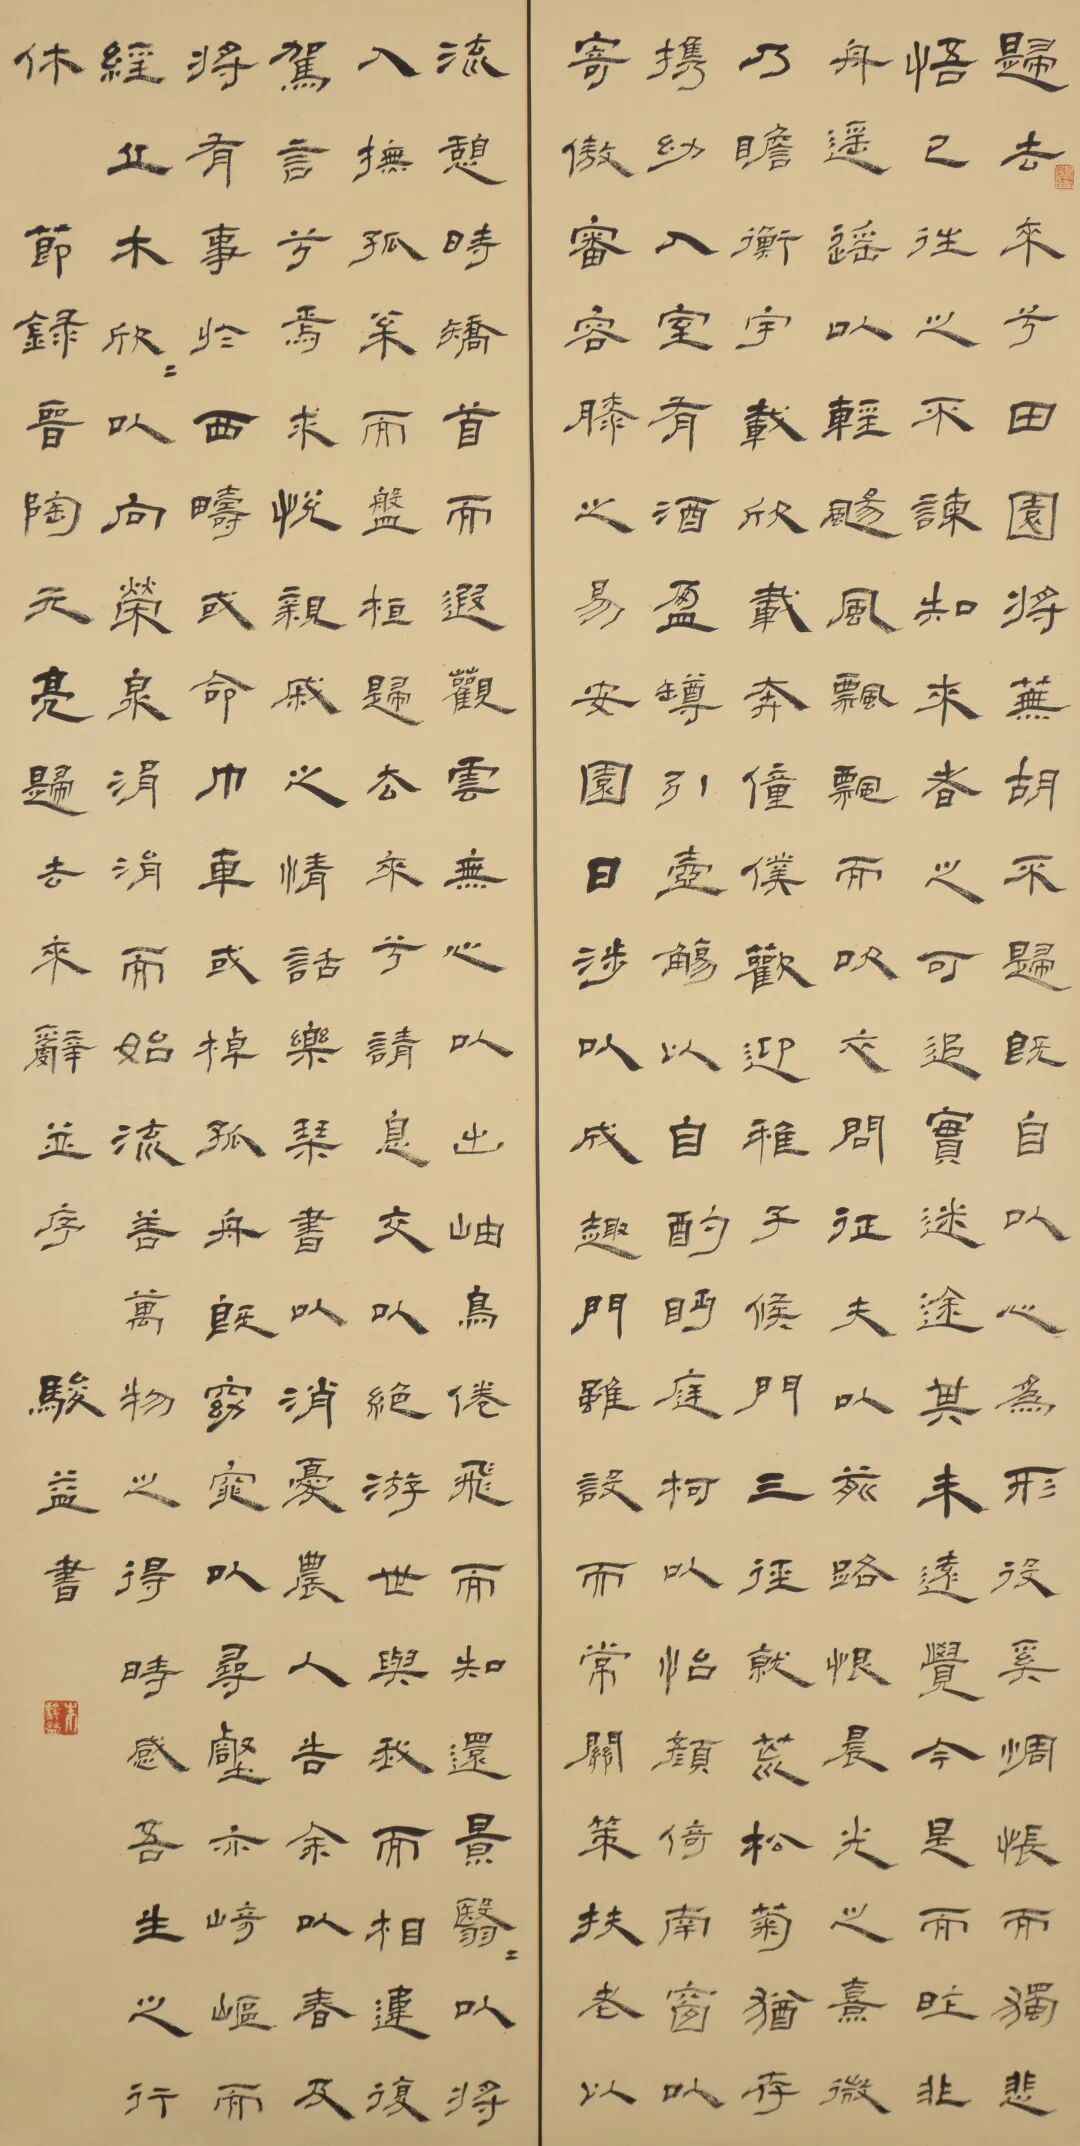 歸去來兮田園將蕪胡不歸既自以心為形役奚惆悵而獨悲
悟已往之不諫知來者之可追實迷途其未遠覺今是而昨非
舟遥遥以輕颺風飄飄而吹衣問征夫以前路恨晨光之熹微
乃瞻衡宇載欣載奔僮僕歡迎稚子候門三徑就荒松菊猶存
攜幼入室有酒盈罇引壺觴以自酌眄庭柯以怡顏倚南窗以
寄傲審容膝之易安園日涉以成趣門雖設而常關策扶老以
流憩時矯首而遐觀雲無心以出岫鳥倦飛而知還景翳〻以將
入撫孤松而盤桓歸去來兮請息交以絕游世與我而相違復
駕言兮焉求悅親戚之情話樂琴書以消憂農人告余以春及
將有事於西疇或命巾車或棹孤舟既窈窕以尋壑亦崎嶇而
經丘木欣〻以向榮泉涓涓而始流善萬物之得時感吾生之行
休 節錄晉陶元亮歸去來辭並序 駿益書